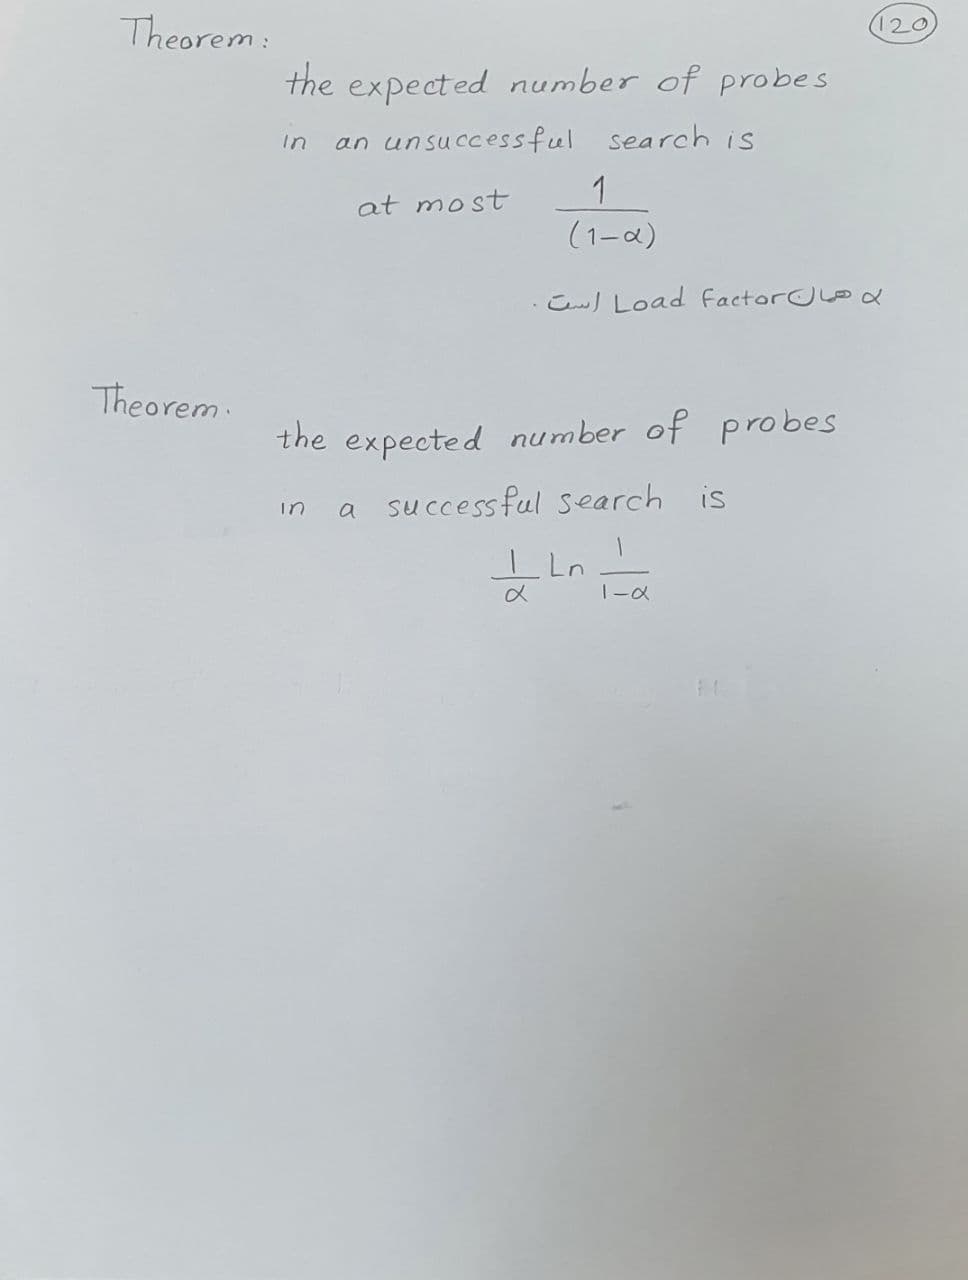 120
Theorem:
the expected number of probes
in an unsuccessful search is
at most 1/(1-α)
α همان Load factor است.
Theorem.
the expected number of probes
in a successful search is
1/α Ln 1/1-α